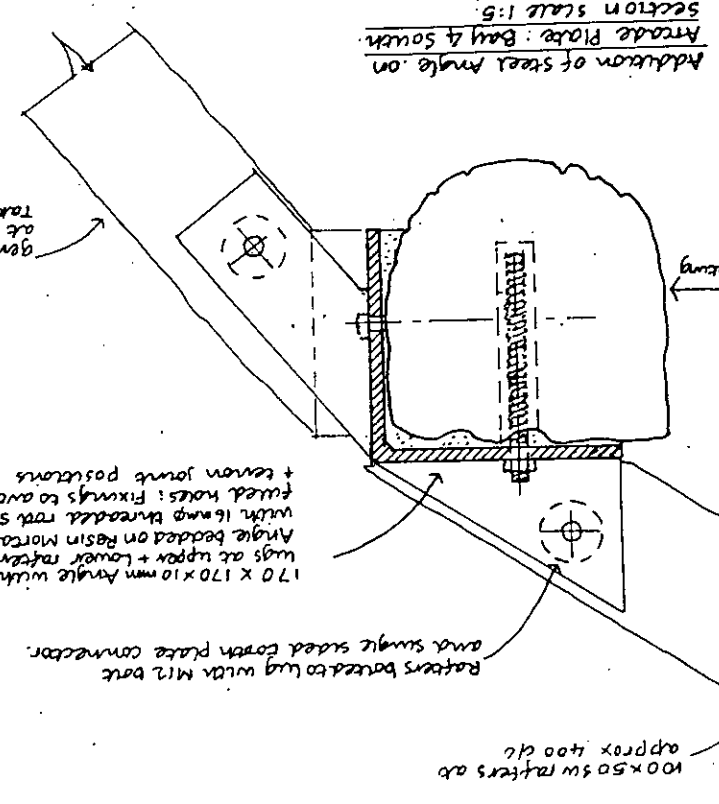 100x50 sw rafters at
approx 400 c/c
Rafters bolted to lug with M12 bolt
and single sided tooth plate connector.
170 x 170 x 10 mm Angle with
lugs at upper + lower rafter
Angle bedded on Resin Morta
with 16mmφ threaded rod s
filled holes: Fixings to avo
+ tenon joint positions
ting
gen
at
Tak
Addition of steel Angle on
Arcade Plate: Bay 4 South.
Section scale 1:5